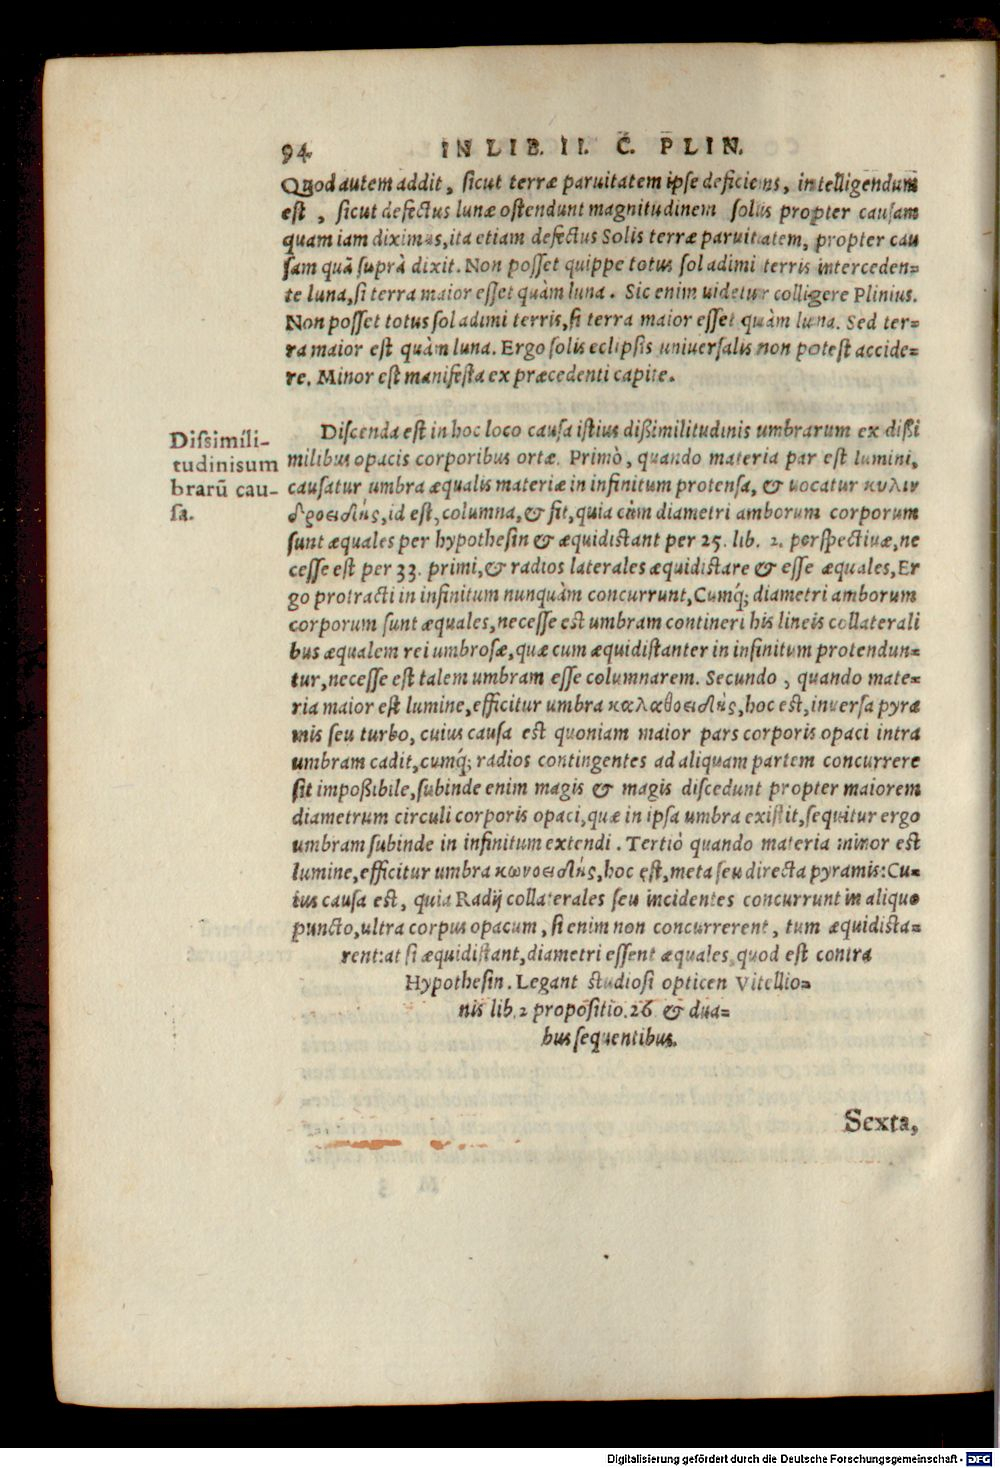 94 IN LIB. II. C. PLIN.
Quod autem addit, sicut terræ paruitatem ipse deficiens, intelligendum
est, sicut defectus lunæ ostendunt magnitudinem solis propter causam
quam iam diximus, ita etiam defectus Solis terræ paruitatem, propter cau
sam quã suprà dixit. Non posset quippe totus sol adimi terris interceden-
te luna, si terra maior esset quàm luna. Sic enim uidetur colligere Plinius.
Non posset totus sol adimi terris, si terra maior esset quàm luna. Sed ter-
ra maior est quàm luna. Ergo solis eclipsis uniuersalis non potest accide-
re. Minor est manifesta ex præcedenti capite.
Dissimili-
tudinis um
brarũ cau-
sa.
Discenda est in hoc loco causa istius dißimilitudinis umbrarum ex dißi
milibus opacis corporibus ortæ. Primò, quando materia par est lumini,
causatur umbra æqualis materiæ in infinitum protensa, & uocatur κυλιν
δροειδὴς, id est, columna, & fit, quia cùm diametri amborum corporum
sunt æquales per hypothesin & æquidistant per 25. lib. 2. perspectiuæ, ne
cesse est per 33. primi, & radios laterales æquidistare & esse æquales, Er
go protracti in infinitum nunquàm concurrunt, Cumq́; diametri amborum
corporum sunt æquales, necesse est umbram contineri his lineis collaterali
bus æqualem rei umbrosæ, quæ cum æquidistanter in infinitum protendun-
tur, necesse est talem umbram esse columnarem. Secundo, quando mate-
ria maior est lumine, efficitur umbra καλαθοειδὴς, hoc est, inuersa pyra
mis seu turbo, cuius causa est quoniam maior pars corporis opaci intra
umbram cadit, cumq́; radios contingentes ad aliquam partem concurrere
sit impoßibile, subinde enim magis & magis discedunt propter maiorem
diametrum circuli corporis opaci, quæ in ipsa umbra existit, sequitur ergo
umbram subinde in infinitum extendi. Tertiò quando materia minor est
lumine, efficitur umbra κωνοειδὴς, hoc est, meta seu directa pyramis: Cu-
ius causa est, quia Radij collaterales seu incidentes concurrunt in aliquo
puncto, ultra corpus opacum, si enim non concurrerent, tum æquidista-
rent: at si æquidistant, diametri essent æquales, quod est contra
Hypothesin. Legant studiosi opticen Vitellio-
nis lib. 2 propositio. 26 & dua-
bus sequentibus.
Sexta,
Digitalisierung gefördert durch die Deutsche Forschungsgemeinschaft - DFG